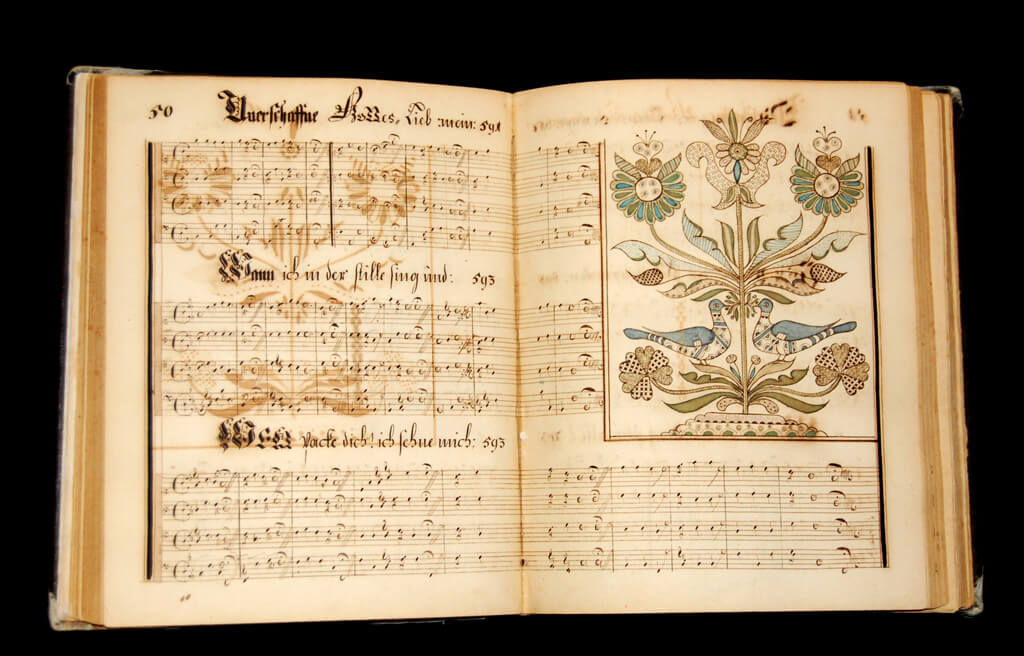 50 Unerschaffne Gottes, Lieb mein: 591
Wann ich in der stille sing und: 593
Weg packe dich! ich sehne mich: 593